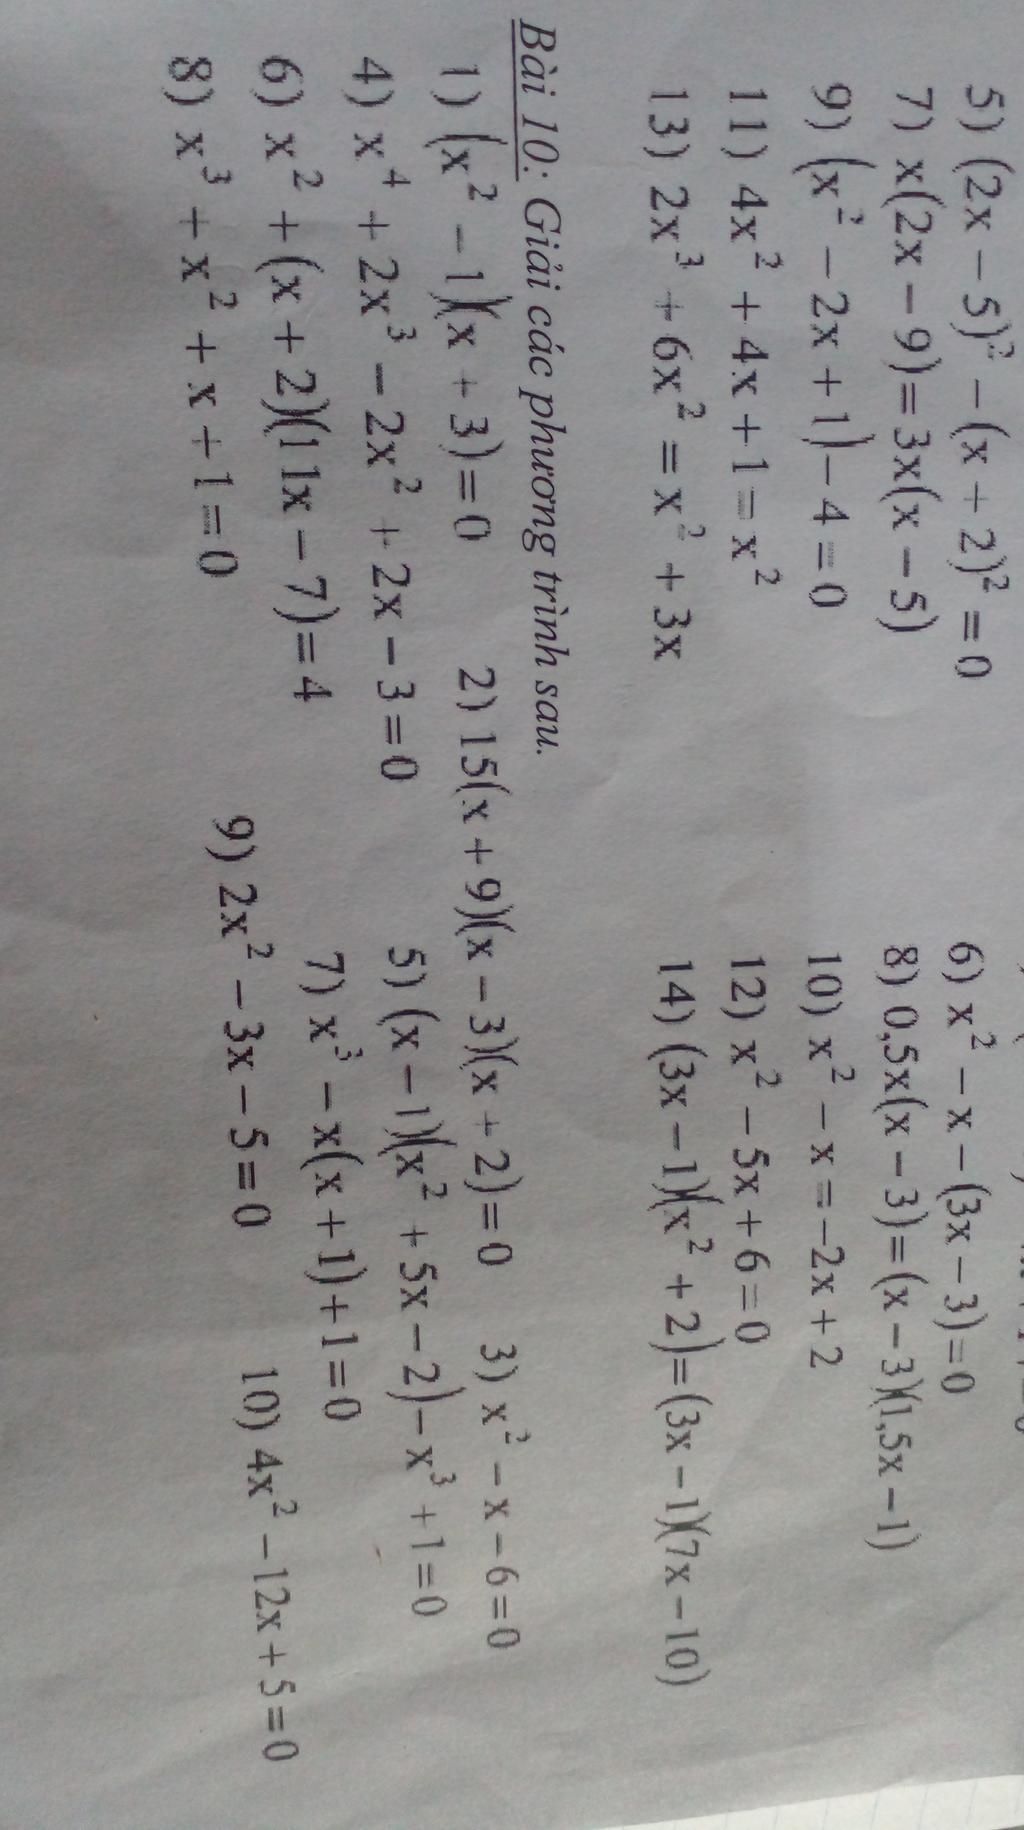 5) (2x − 5)² − (x + 2)² = 0
6) x² − x − (3x − 3) = 0
7) x(2x − 9) = 3x(x − 5)
8) 0,5x(x − 3) = (x − 3)(1,5x − 1)
9) (x² − 2x + 1) − 4 = 0
10) x² − x = −2x + 2
11) 4x² + 4x + 1 = x²
12) x² − 5x + 6 = 0
13) 2x³ + 6x² = x² + 3x
14) (3x − 1)(x² + 2) = (3x − 1)(7x − 10)
Bài 10: Giải các phương trình sau.
1) (x² − 1)(x + 3) = 0 2) 15(x + 9)(x − 3)(x + 2) = 0 3) x² − x − 6 = 0
4) x⁴ + 2x³ − 2x² + 2x − 3 = 0 5) (x − 1)(x² + 5x − 2) − x³ + 1 = 0
6) x² + (x + 2)(11x − 7) = 4 7) x³ − x(x + 1) + 1 = 0
8) x³ + x² + x + 1 = 0 9) 2x² − 3x − 5 = 0 10) 4x² − 12x + 5 = 0